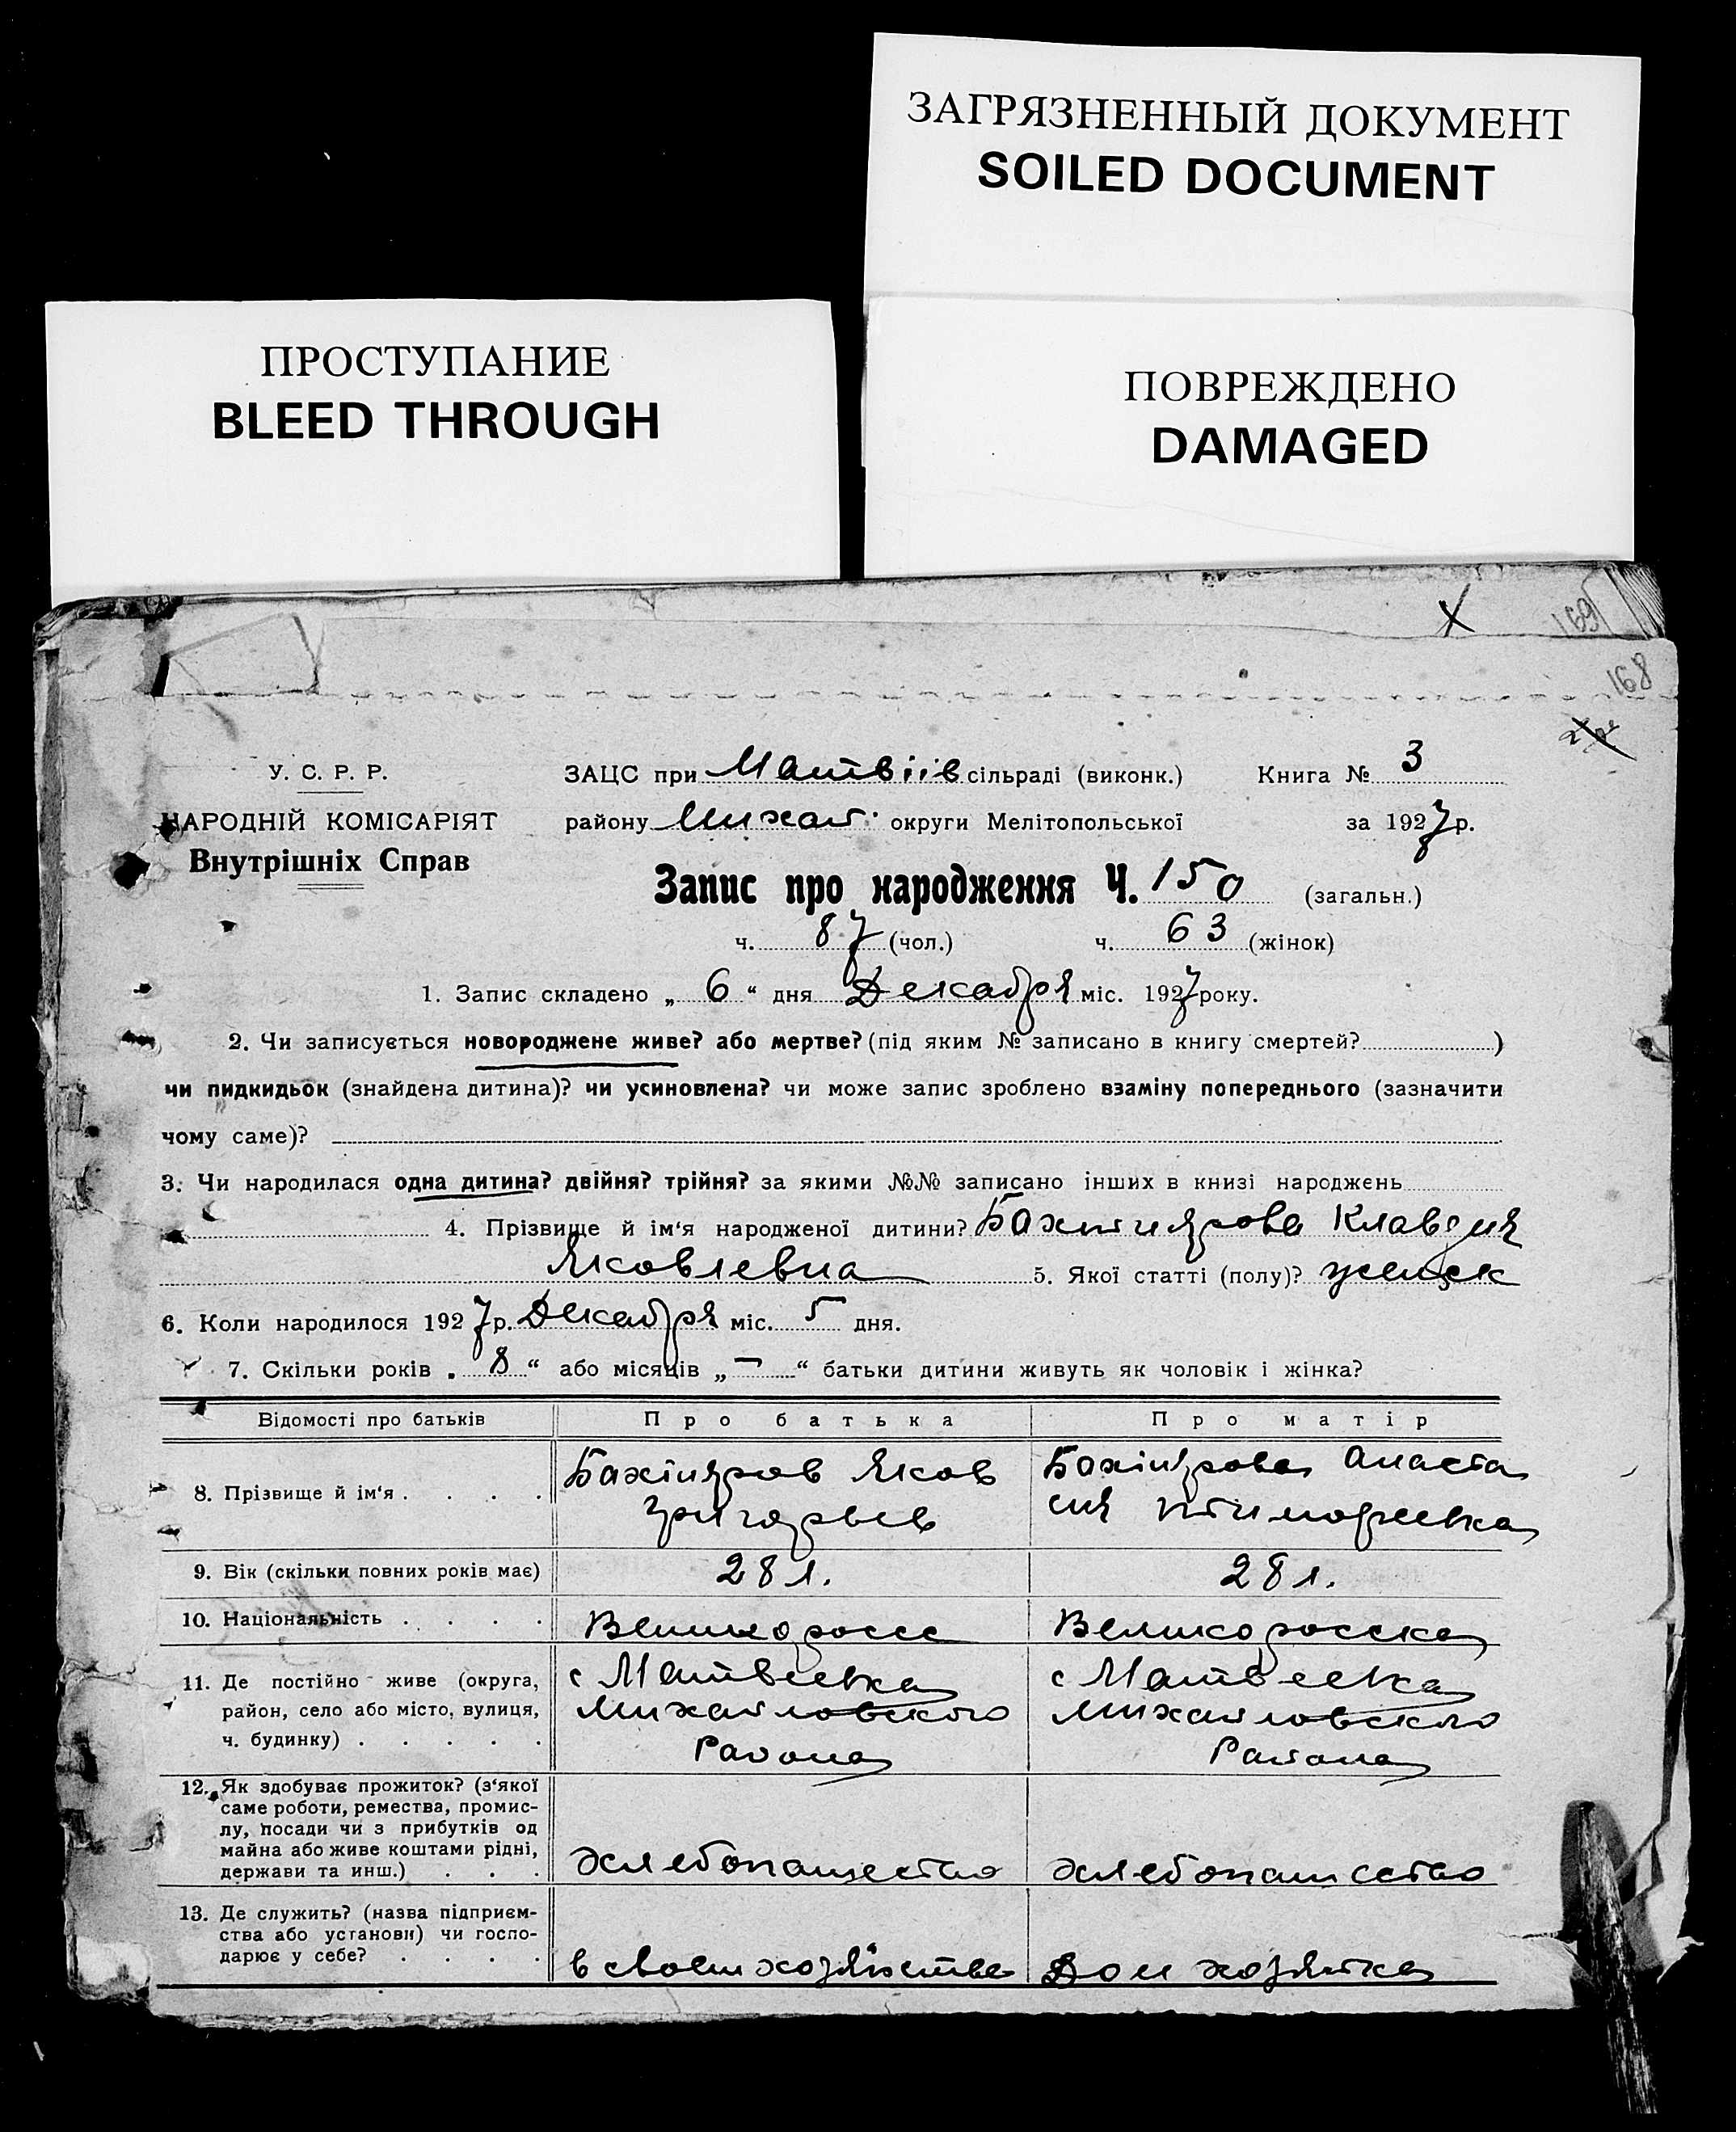 ЗАГРЯЗНЕННЫЙ ДОКУМЕНТ
SOILED DOCUMENT
ПРОСТУПАНИЕ
BLEED THROUGH
ПОВРЕЖДЕНО
DAMAGED
169
168
У. С. Р. Р.
ЗАЦС при Матвіів сільраді (виконк.) Книга № 3
НАРОДНІЙ КОМІСАРІЯТ
району Михай. округи Мелітопольської за 1927 р.
Внутрішніх Справ
Запис про народження Ч. 150 (загальн.)
ч. 87 (чол.) ч. 63 (жінок)
1. Запис складено „ 6 “ дня Декабря міс. 1927 року.
2. Чи записується новороджене живе? або мертве? (під яким № записано в книгу смертей? )
чи пидкидьок (знайдена дитина)? чи усиновлена? чи може запис зроблено взаміну попереднього (зазначити
чому саме)?
3. Чи народилася одна дитина? двійня? трійня? за якими №№ записано інших в книзі народжень
4. Прізвище й ім‘я народженої дитини? Бахтиярова Клавдия
Яковлевна 5. Якої статті (полу)? женск
6. Коли народилося 1927 р. Декабря міс. 5 дня.
7. Скільки років „ 8 “ або місяців „ — “ батьки дитини живуть як чоловік і жінка?
Відомості про батьків Про батька Про матір
8. Прізвище й ім‘я . . . . Бахтияров Яков Бахтиярова Анаста
Григорьев сия Тимофеевна
9. Вік (скільки повних років має) 28 л. 28 л.
10. Національність . . . . Великоросс Великоросска
11. Де постійно живе (округа, с Матвеевка с Матвеевка
район, село або місто, вулиця, Михайловского Михайловского
ч. будинку) . . . . . Района Района
12. Як здобуває прожиток? (з‘якої
саме роботи, ремества, промис-
лу, посади чи з прибутків од
майна або живе коштами рідні,
держави та инш.) . . . хлебопашество хлебопашество
13. Де служить? (назва підприєм-
ства або установи) чи госпо-
дарює у себе? . . . . в своем хозяйстве Дом хозяйка